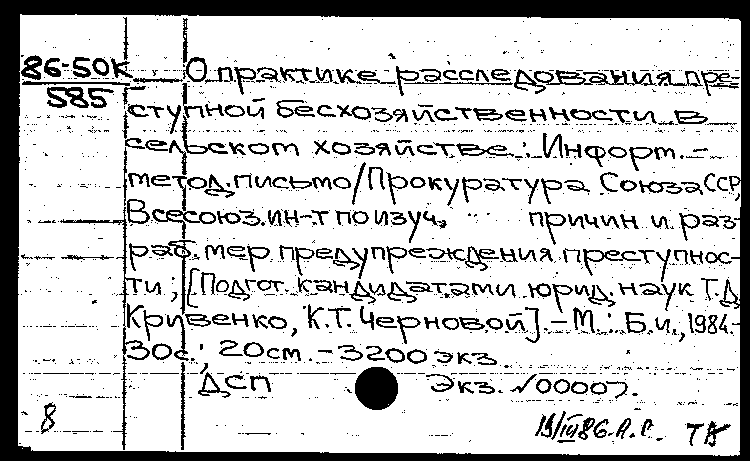 86-50К
585
О практике расследования пре-
ступной бесхозяйственности в
сельском хозяйстве: Информ.-
метод. письмо/Прокуратура Союза ССР,
Всесоюз. ин-т по изуч. причин и раз-
раб. мер предупреждения преступнос-
ти; [Подгот. кандидатами юрид. наук Т.Д.
Кривенко, К.Т. Черновой]. - М.: Б.и., 1984.-
30с.; 20см. - 3200 экз.
ДСП Экз. №00007.
8
/III 86.